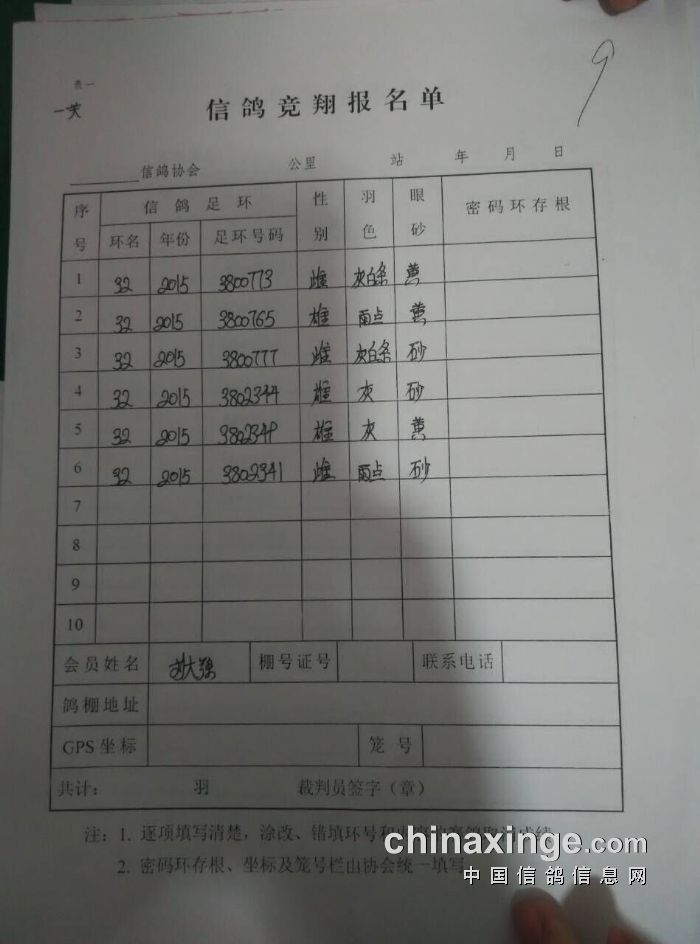 表一
一关
9
信鸽竞翔报名单
信鸽协会 公里 站 年 月 日
序号 信鸽足环 性别 羽色 眼砂 密码环存根
环名 年份 足环号码
1 32 2015 3800773 雌 灰白条 黄
2 32 2015 3800765 雄 雨点 黄
3 32 2015 3800777 雌 灰白条 砂
4 32 2015 3802344 雄 灰 砂
5 32 2015 3802349 雄 灰 黄
6 32 2015 3802341 雌 雨点 砂
7
8
9
10
会员姓名 刘大强 棚号证号 联系电话
鸽棚地址
GPS坐标 笼号
共计: 羽 裁判员签字(章)
注:1. 逐项填写清楚,涂改、错填环号和
2. 密码环存根、坐标及笼号栏由协会统一填写
chinaxinge.com
中国信鸽信息网